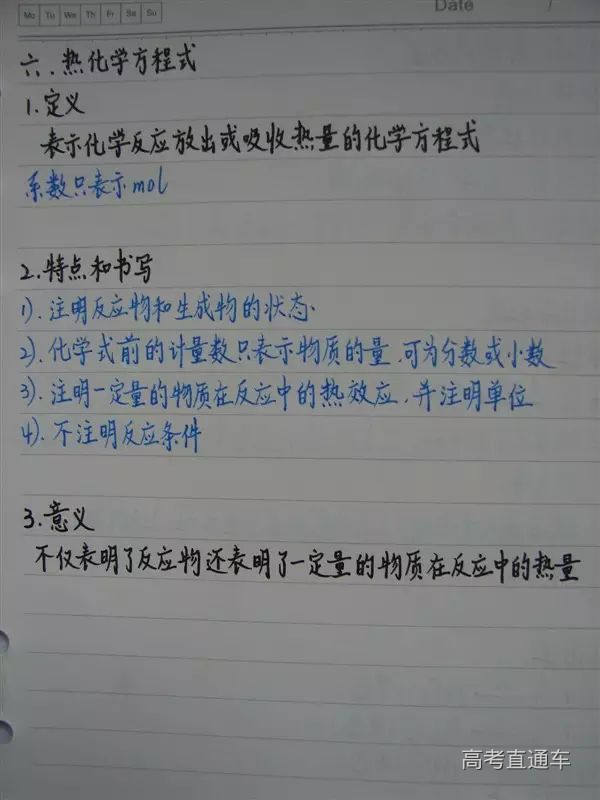 Mo Tu We Th Fr Sa Su
Date /
六.热化学方程式
1.定义
表示化学反应放出或吸收热量的化学方程式
系数只表示mol
2.特点和书写
1).注明反应物和生成物的状态.
2).化学式前的计量数只表示物质的量.可为分数或小数
3).注明一定量的物质在反应中的热效应.并注明单位
4).不注明反应条件
3.意义
不仅表明了反应物还表明了一定量的物质在反应中的热量
高考直通车